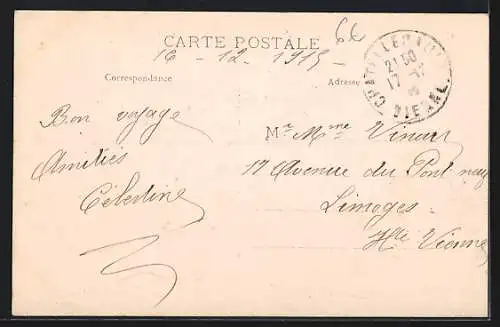 66
CARTE POSTALE
16 - 12 - 1915 -
Correspondance
Adresse
21 30
17 - 12
VIENNE
Bon voyage
Amitiés
Célestine
Mr Mme
17 Avenue du Pont neuf
Limoges
Hte Vienne